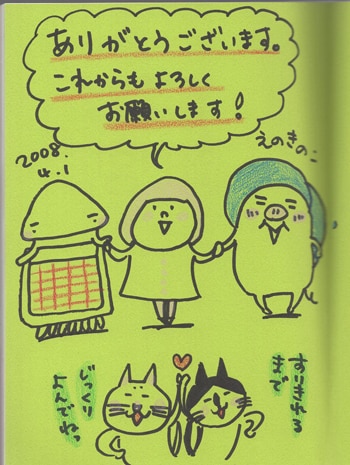 ありがとうございます。
これからもよろしく
お願いします!
2008.
4.1
えのきのこ
すりきれる
まで
じっくり
よんでねっ